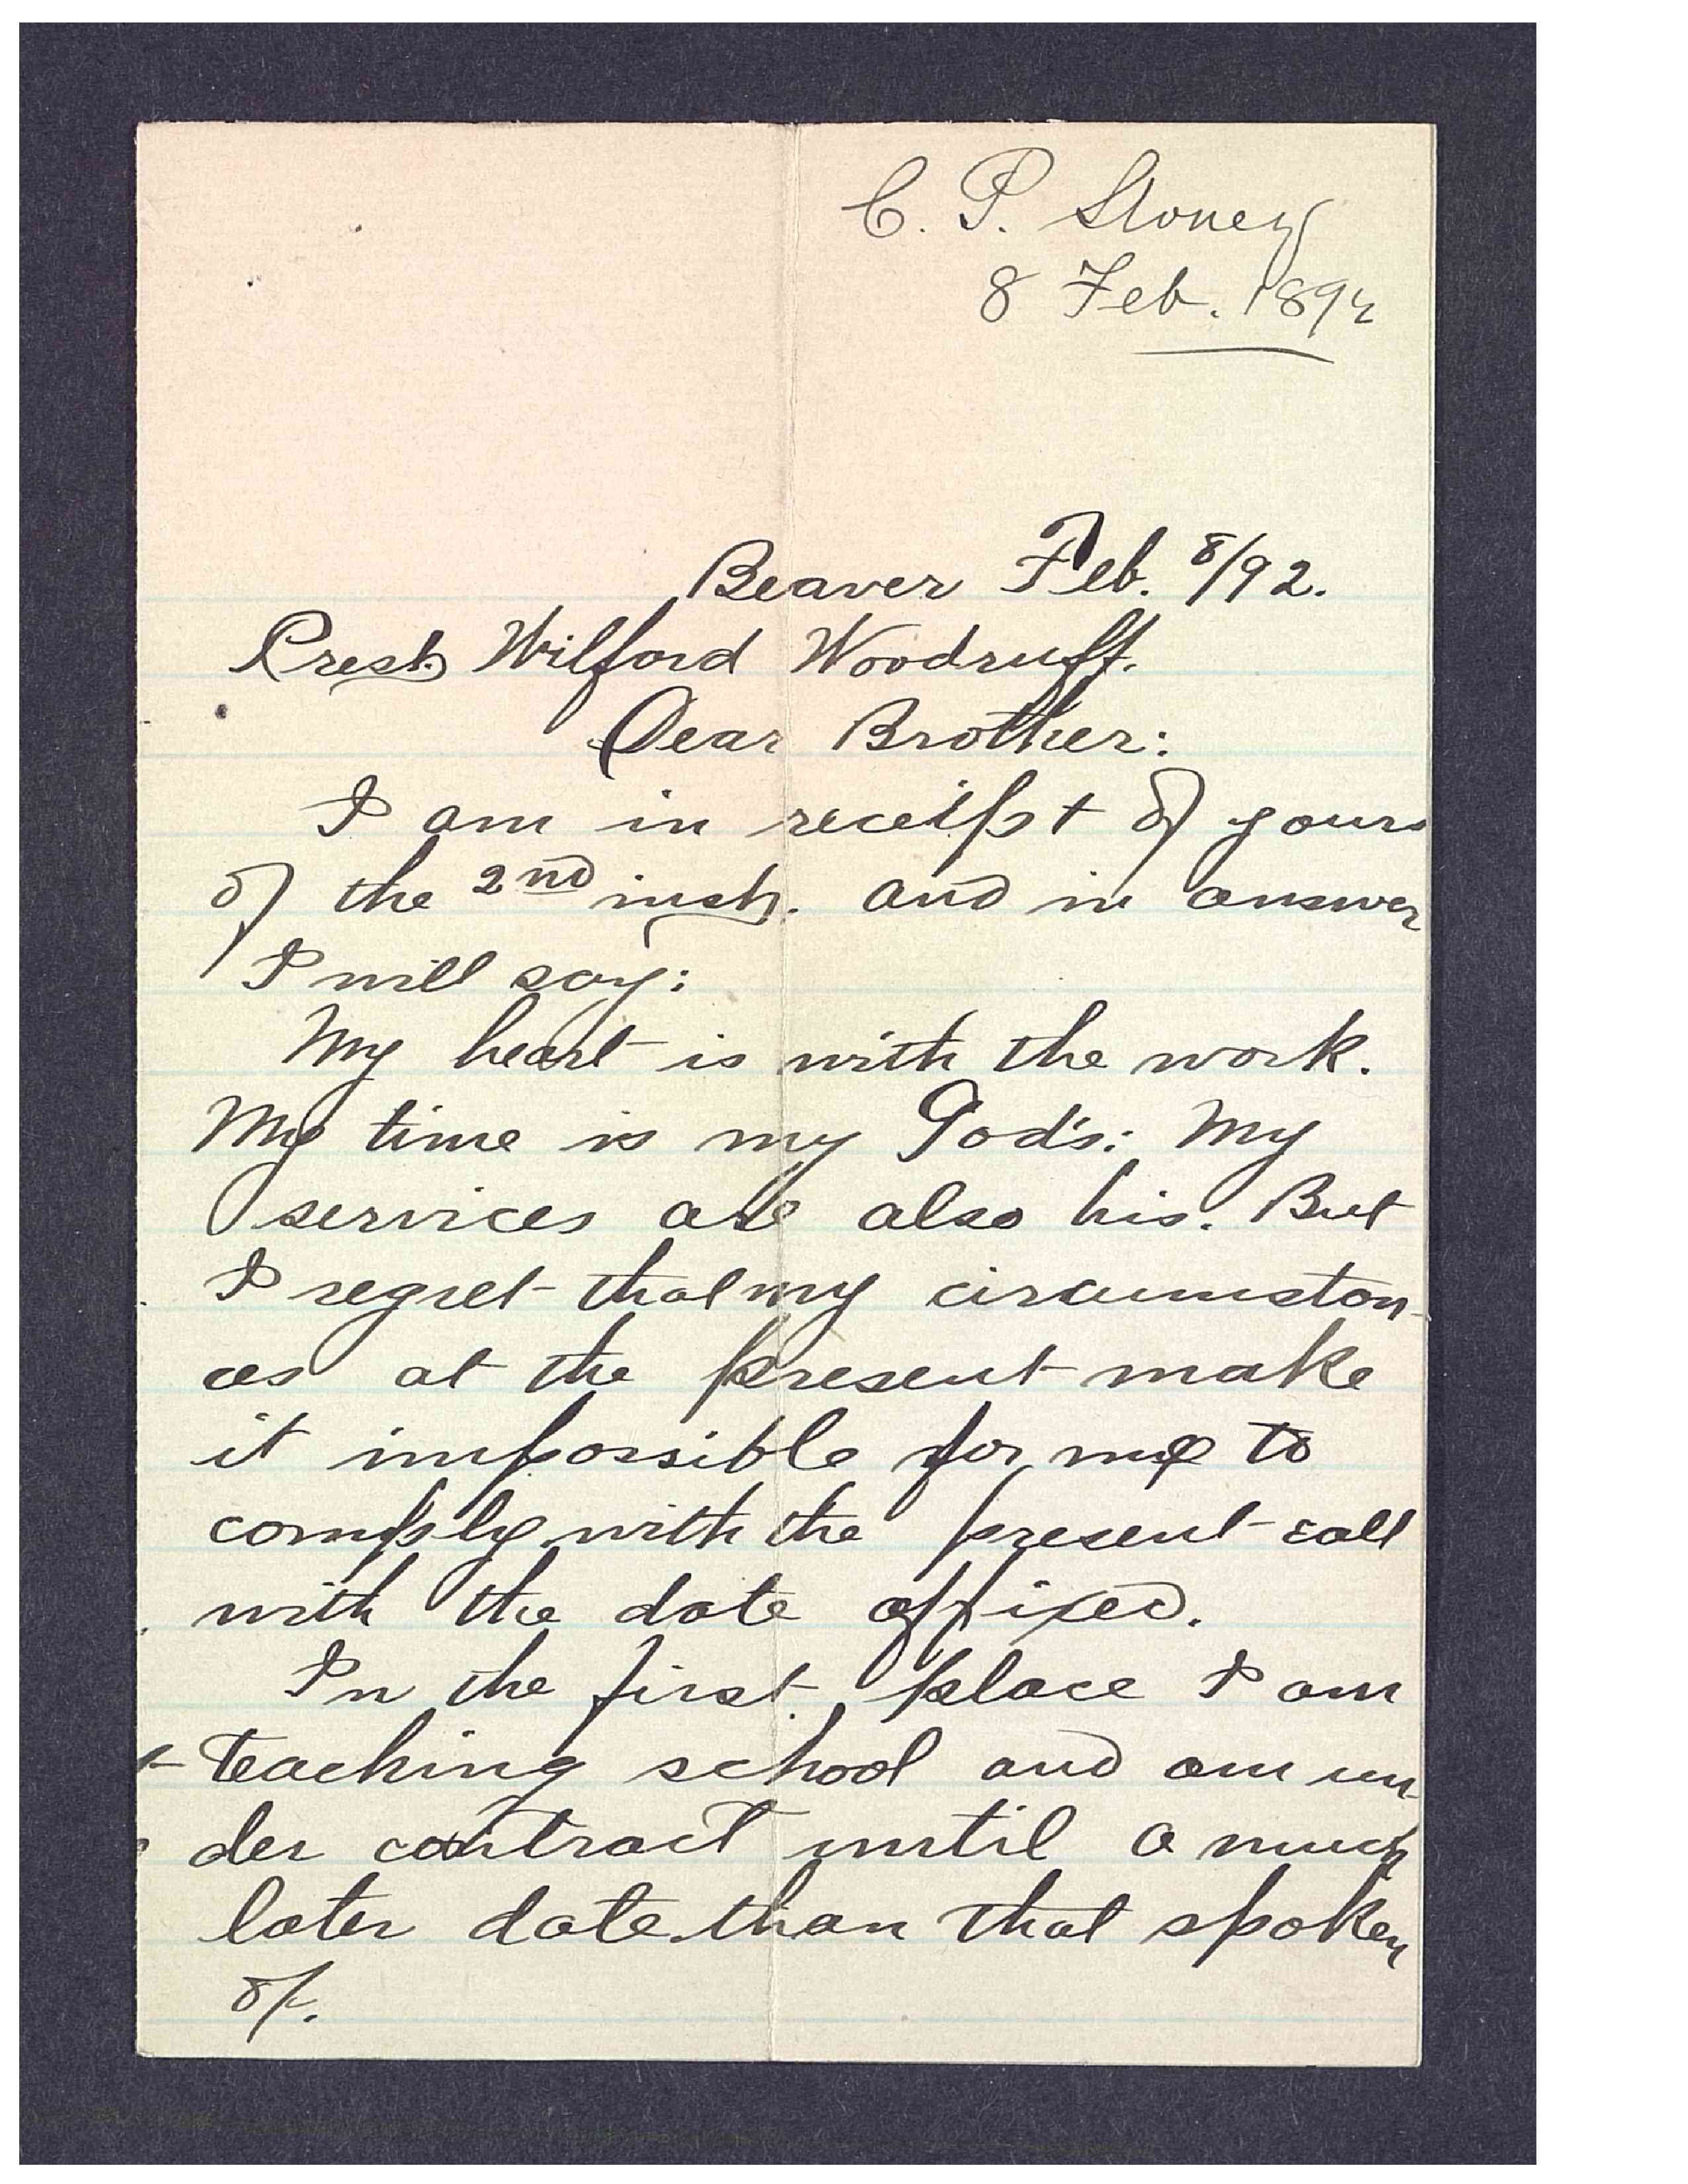 C. P. Stoney
8 Feb. 1892
Beaver Feb. 8/92.
Prest. Wilford Woodruff.
Dear Brother:
I am in receipt of yours
of the 2nd inst. and in answer
I will say:
My heart is with the work.
My time is my God's: My
services are also his. But
I regret that my circumstan-
ces at the present make
it impossible for me to
comply with the present call
with the date affixed.
In the first place I am
teaching school and am un-
der contract until a much
later date than that spoken
of.